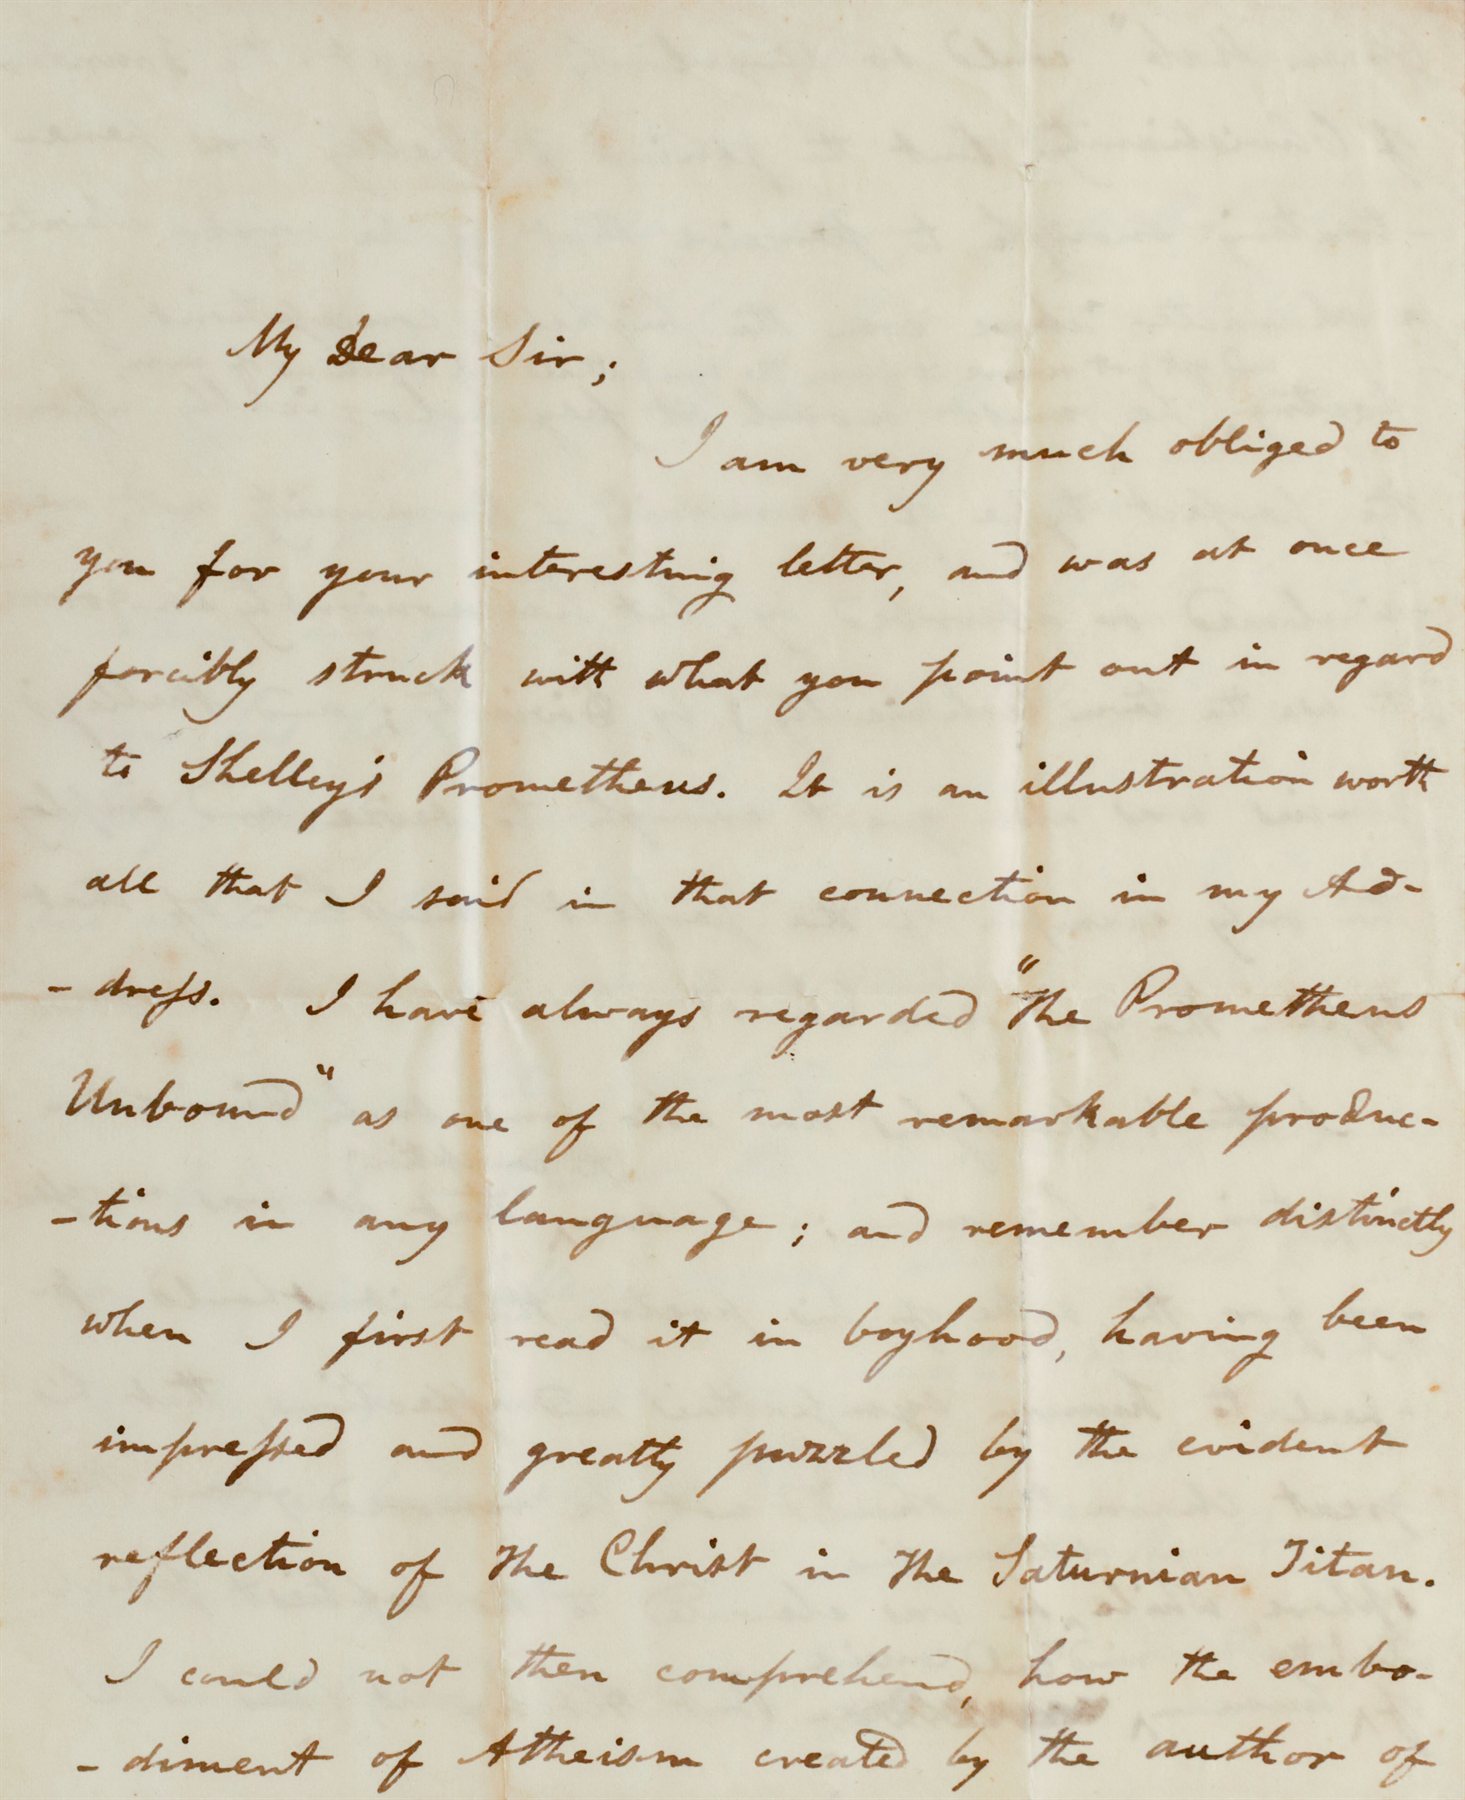 My Dear Sir;
I am very much obliged to
you for your interesting letter, and was at once
forcibly struck with what you point out in regard
to Shelley's Prometheus. It is an illustration worth
all that I said in that connection in my Ad-
-dreſs. I have always regarded "The Prometheus
Unbound" as one of the most remarkable produc-
-tions in any language; and remember distinctly
when I first read it in boyhood, having been
impreſsed and greatly puzzled by the evident
reflection of The Christ in The Saturnian Titan.
I could not then comprehend, how the embo-
-diment of Atheism created by the author of